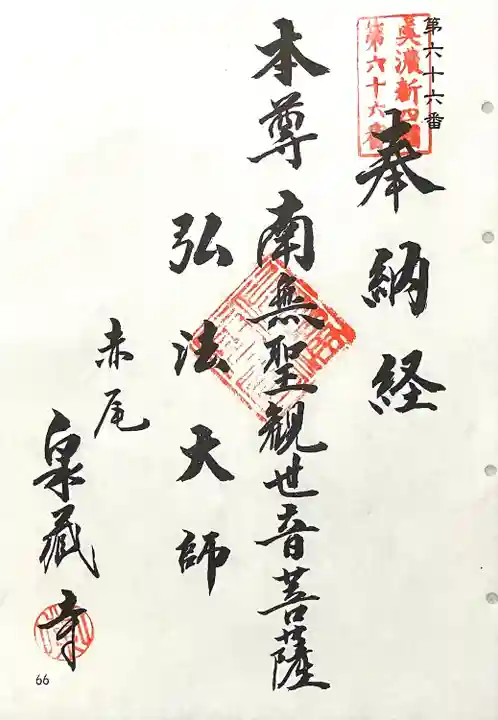 第六十六番
美濃新四國
第六十六番
奉納経
本尊 南無聖観世音菩薩
弘法大師
赤尾
泉蔵寺
66